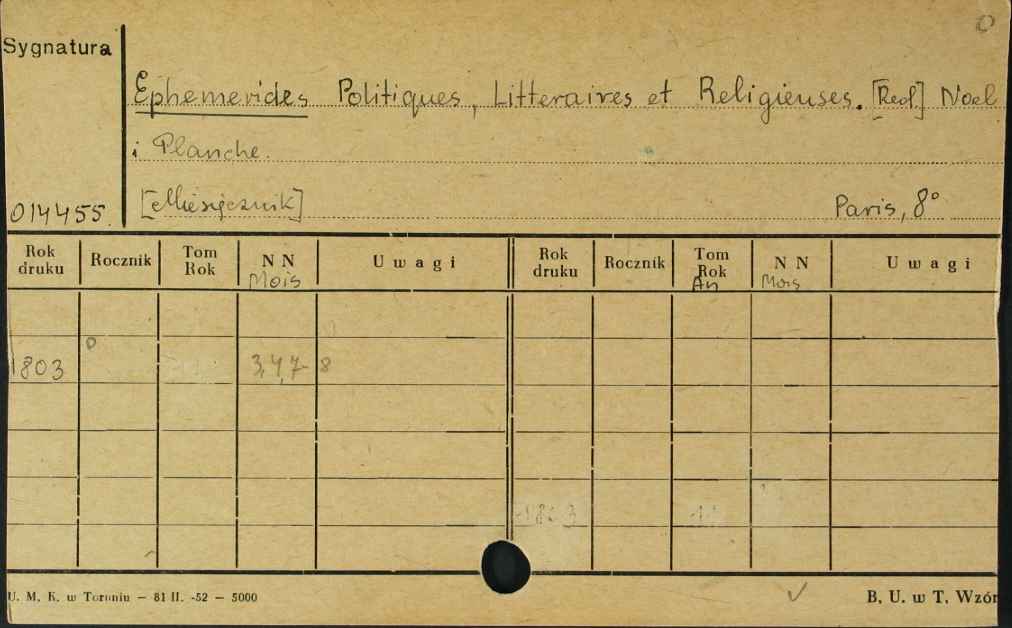 Sygnatura
Ephemerides Politiques, Litteraires et Religieuses. [Red] Noel
i Planche.
014455
[Miesięcznik] Paris, 8°
Rok druku Rocznik Tom Rok NN Mois Uwagi Rok druku Rocznik Tom Rok An NN Mois Uwagi
1803 3,4,7-8
U. M. K. w Toruniu — 81 II. -52 — 5000 B. U. w T. Wzór